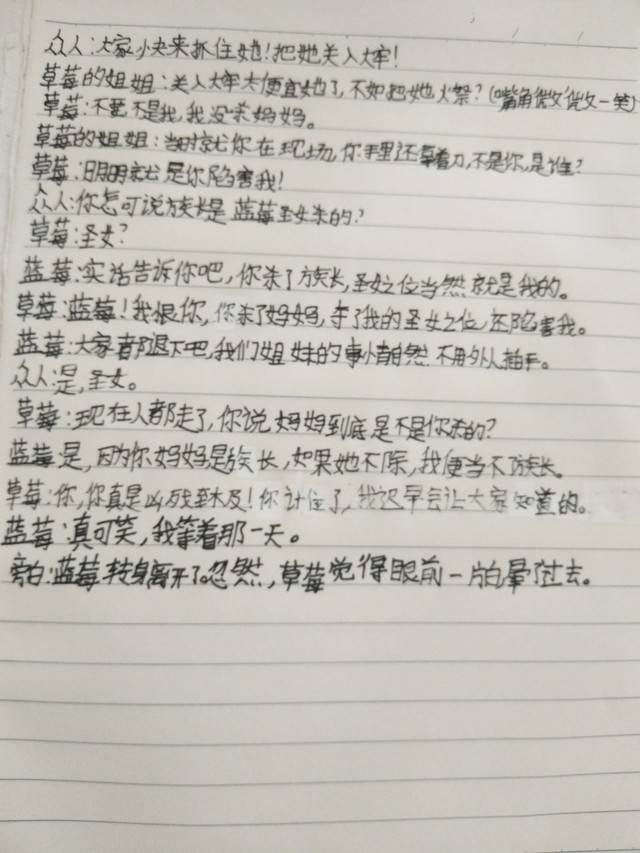 众人:大家快来抓住她!把她关入大牢!
草莓的姐姐:关入大牢太便宜她了,不如把她火祭?(嘴角微微一笑)
草莓:不要不是我,我没杀妈妈。
草莓的姐姐:当时就你在现场,你手里还拿着刀,不是你,是谁?
草莓:明明就是你陷害我!
众人:你怎可说族长是蓝莓圣女杀的?
草莓:圣女?
蓝莓:实话告诉你吧,你杀了族长,圣女之位当然就是我的。
草莓:蓝莓!我恨你,你杀了妈妈,夺了我的圣女之位,还陷害我。
蓝莓:大家都退下吧,我们姐妹的事情自然不用外人插手。
众人:是,圣女。
草莓:现在人都走了,你说妈妈到底是不是你杀的?
蓝莓:是,因为你妈妈是族长,如果她不除,我便当不了族长。
草莓:你,你真是凶残至极!你计住了,我迟早会让大家知道的。
蓝莓:真可笑,我等着那一天。
旁白:蓝莓转身离开了。忽然,草莓觉得眼前一片白晕了过去。